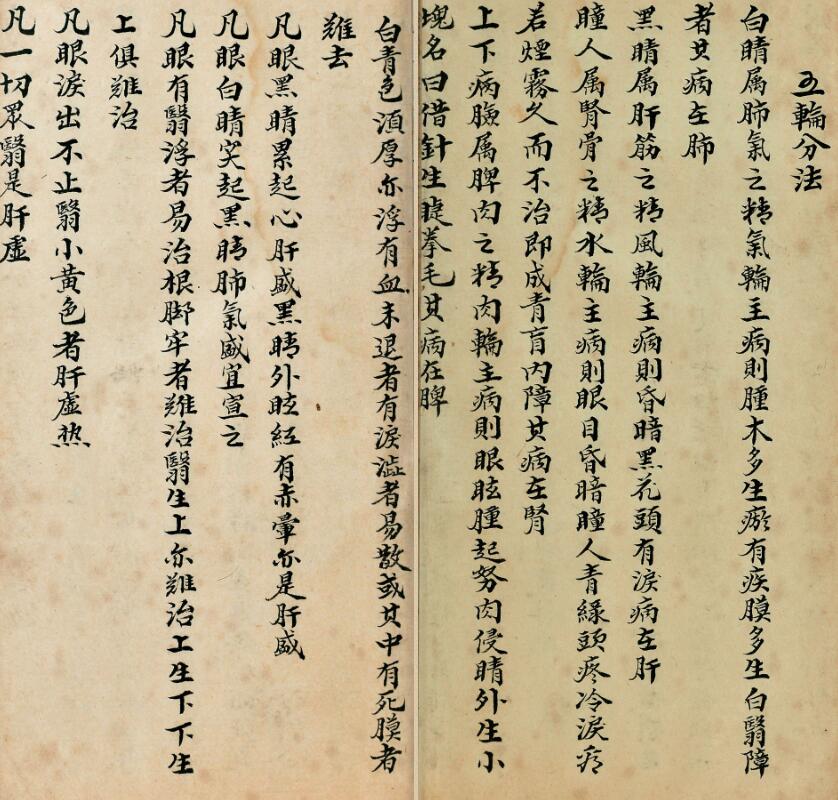 五輪分法
白睛属肺氣之精氣輪主病則腫木多生瘀有疾膜多生白翳障
者其病在肺
黑睛属肝筋之精風輪主病則昏暗黑花頭有淚病在肝
瞳人属腎骨之精水輪主病則眼目昏暗瞳人青緑頭疼冷淚
若煙霧久而不治即成青盲内障其病在腎
上下病臉属脾肉之精肉輪主病則眼眩腫起努肉侵睛外生小
塊名曰偕針生睫拳毛其病在脾
白青色湏厚亦浮有血未退者有淚澁者易散或其中有死膜者
難去
凡眼黑睛累起心肝盛黑睛外眩紅有赤暈亦是肝盛
凡眼白睛突起黑睛肺氣盛宜宣之
凡眼有翳浮者易治根脚牢者難治翳生上亦難治上生下下生
上俱難治
凡眼淚出不止翳小黄色者肝虚热
凡一切眾翳是肝虚